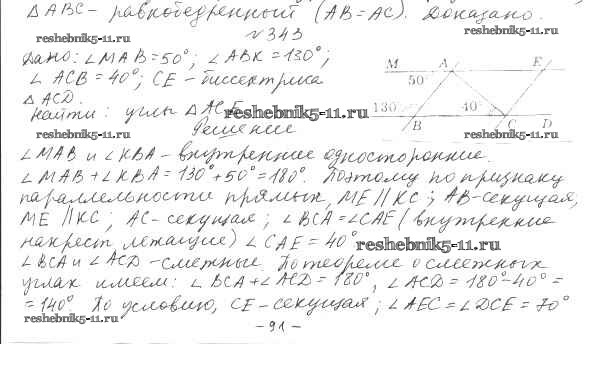 △ABC - равнобедренный (AB=AC). Доказано.
reshebnik5-11.ru
№343
reshebnik5-11.ru
Дано: ∠MAB=50°; ∠ABK=130°;
∠ACB=40°; CE - биссектриса
△ACD.
Найти: углы △ACE
reshebnik5-11.ru
Решение
M A E
50°
130° 40°
B C D
reshebnik5-11.ru
reshebnik5-11.ru
∠MAB и ∠KBA - внутренние односторонние.
∠MAB+∠KBA=130°+50°=180°. Поэтому по признаку
параллельности прямых, ME∥KC; AB-секущая;
ME∥KC; AC-секущая; ∠BCA=∠CAE (внутренние
накрест лежащие) ∠CAE=40°
reshebnik5-11.ru
∠BCA и ∠ACD - смежные. По теореме о смежных
углах имеем: ∠BCA+∠ACD=180°, ∠ACD=180°-40°=
=140° По условию, CE-секущая; ∠AEC=∠DCE=70°
reshebnik5-11.ru
- 91 -